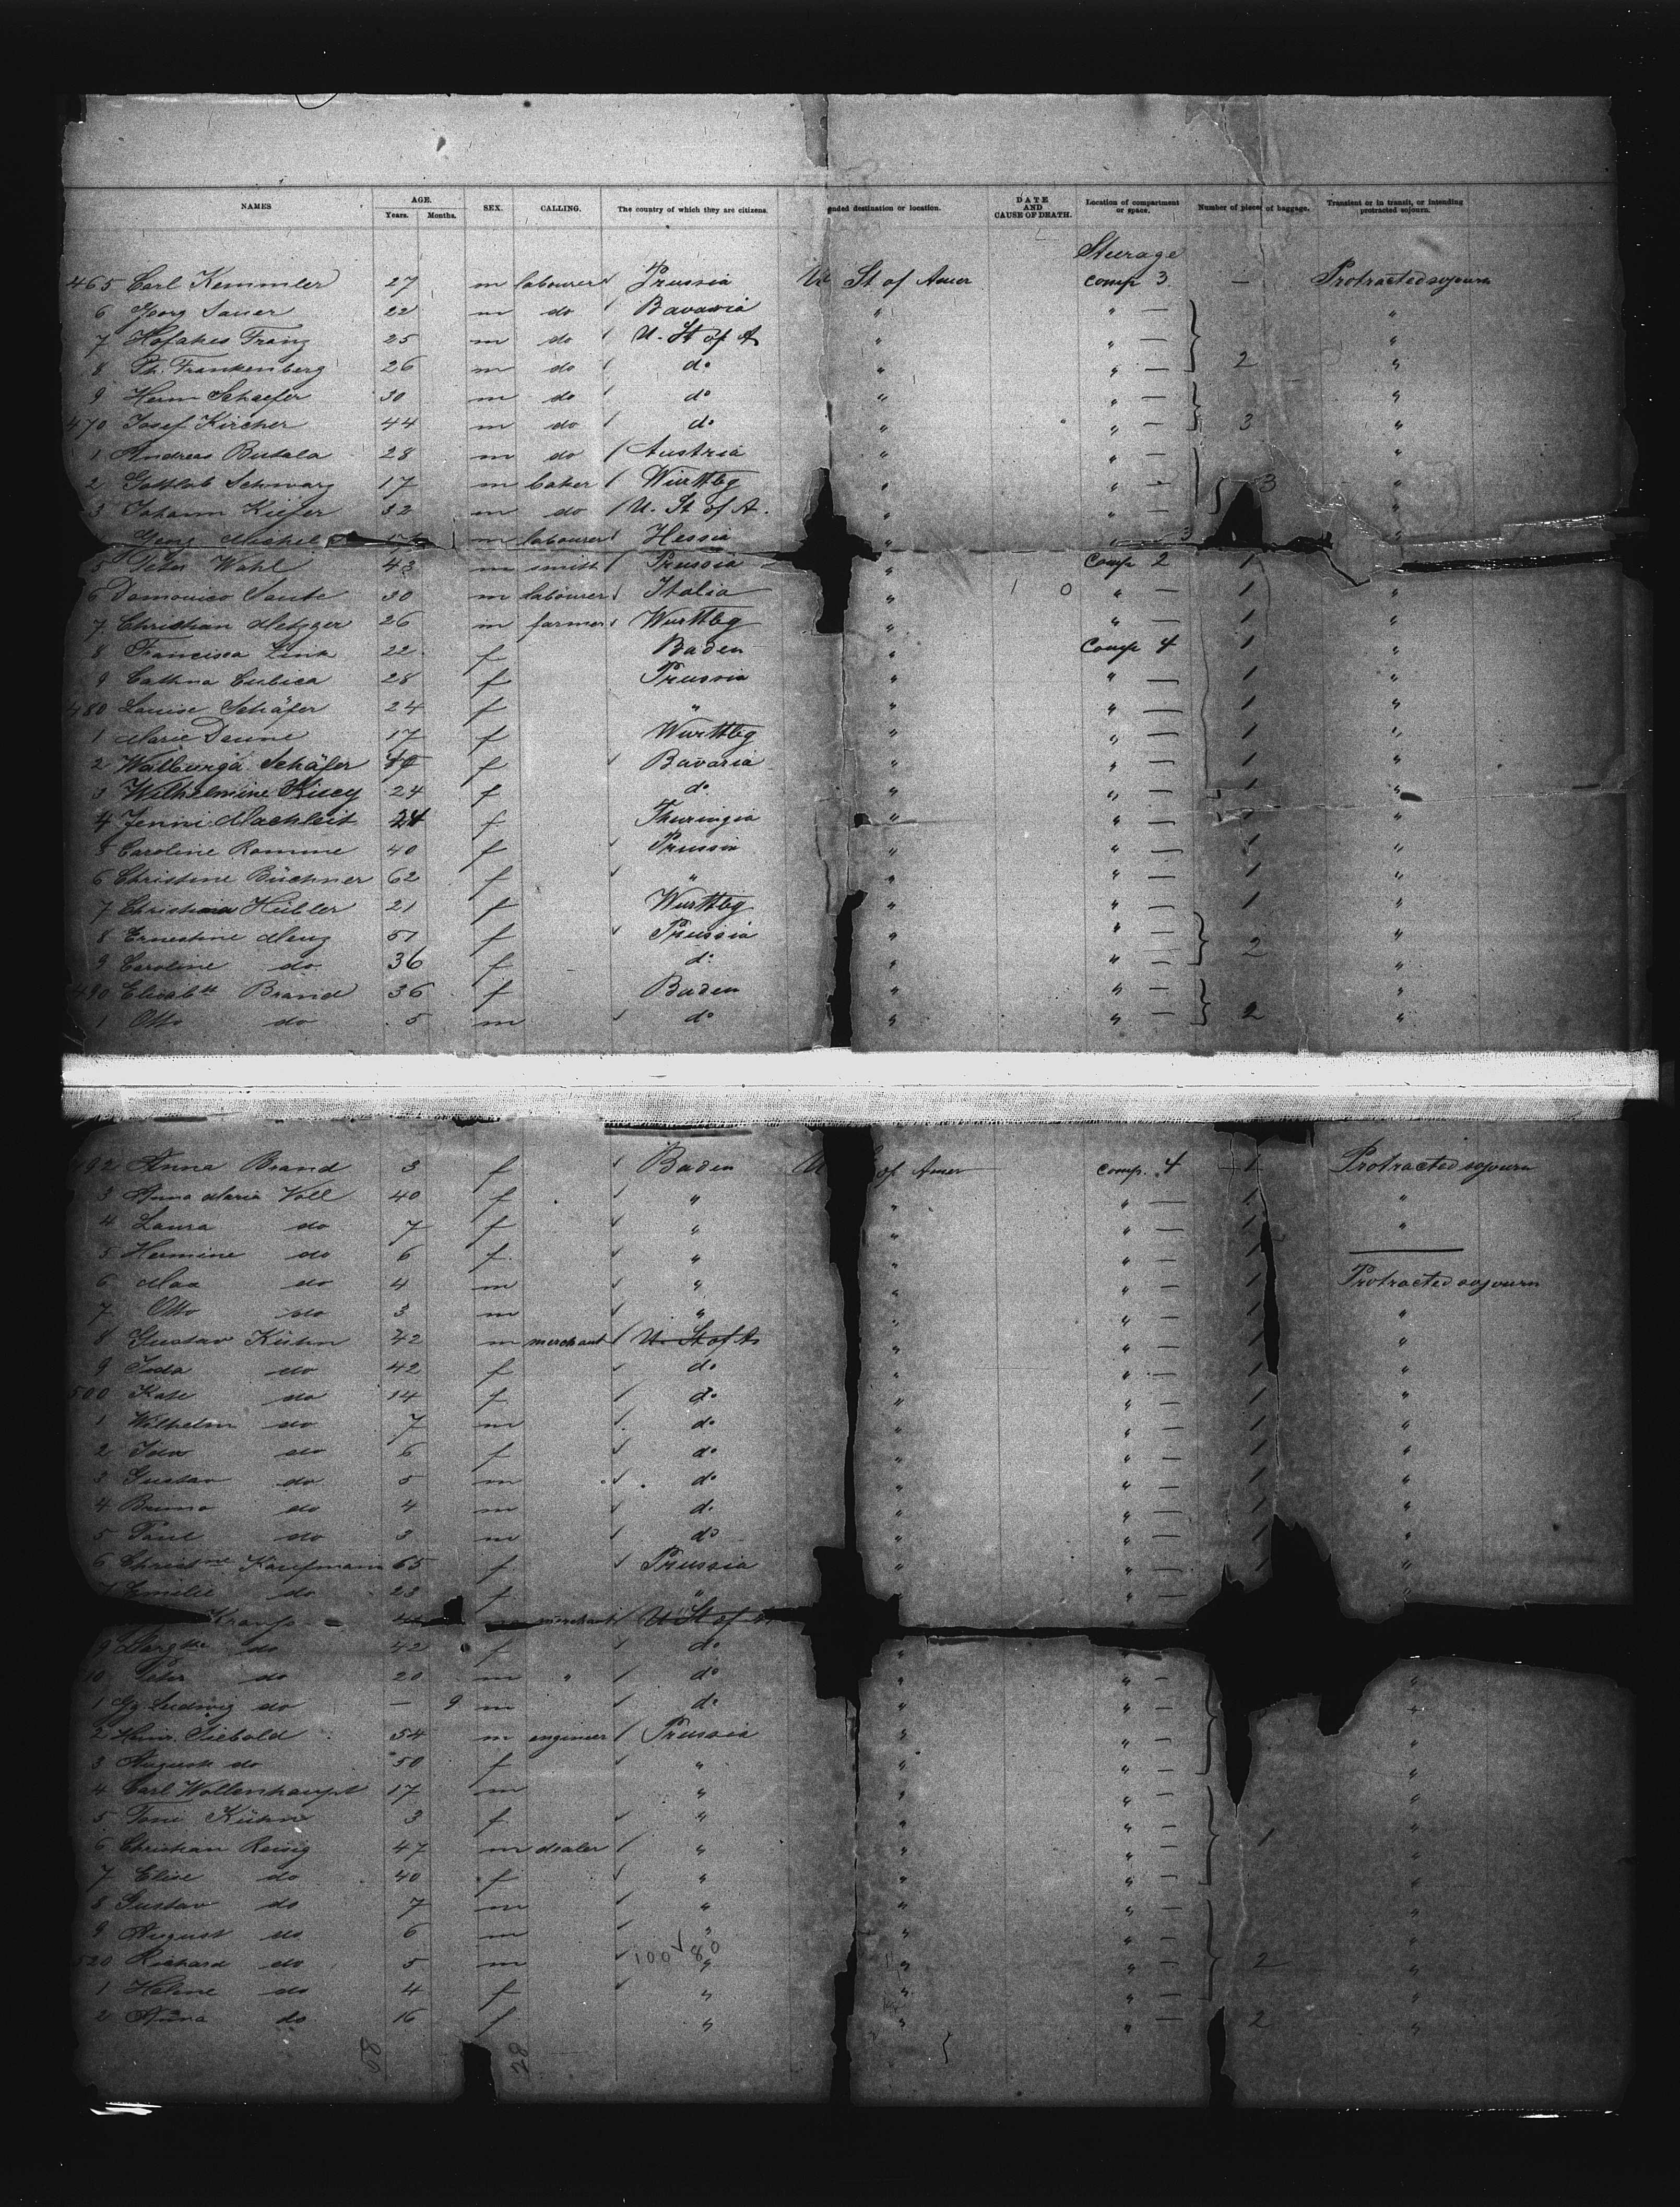 NAMES AGE. Years. Months. SEX. CALLING. The country of which they are citizens. nded destination or location. DATE AND CAUSE OF DEATH. Location of compartment or space. Number of pieces of baggage. Transient or in transit, or intending protracted sojourn.
Steerage
465 Carl Kemmler 27 m labourer Prussia U St of Amer comp 3 — Protracted sojourn
6 Georg Sauer 22 m do Bavaria " " — "
7 Hofakes Franz 25 m do U. St of A " " — "
8 Ph. Frankenberg 26 m do do " " — 2 "
9 Herm Schaefer 30 m do do " " — "
470 Josef Kircher 44 m do do " " — 3 "
1 Andreas Butala 28 m do Austria " " — "
2 Gottlob Schwarz 17 m baker Württbg " " — 3 "
3 Johann Kiefer 32 m do U. St of A. " " — "
Georg Michel m labourer Hessia " " 3 "
5 Peter Wahl 43 m smith Prussia " Comp 2 1
6 Domonico Sante 30 m labourer Italia " 1 0 " — 1 "
7 Christian Metzger 26 m farmer Wurttbg " " — 1 "
8 Francisca Link 22 f Baden " Comp 4 1 "
9 Cathna Cubica 28 f Prussia " " — 1 "
480 Louise Schäfer 24 f " " " — 1 "
1 Marie Daune 17 f Wurttbg " " — 1 "
2 Walburga Schäfer f Bavaria " " — 1 "
3 Wilhelmine 24 f do " " — 1 "
4 Jenni Machleit 24 f Thuringia " " — 1 "
5 Caroline Romme 40 f Prussia " " — 1 "
6 Christine Büchner 62 f " " " — 1 "
7 Christina Hübler 21 f Wurttbg " " — 1 "
8 Ernestine Menz 51 f Prussia " " — 2 "
9 Caroline do 36 f do " " — "
490 Elisabth Brand 36 f Baden " " — "
1 Otto do 5 m do " " — 2 "
492 Anna Brand 3 f Baden U of Amer comp. 4 1 Protracted sojourn
3 Anna Maria Voll 40 f " " " — 1 "
4 Laura do 7 f " " " — 1 "
5 Hermine do 6 f " " " — 1 —
6 Max do 4 m " " " — 1 Protracted sojourn
7 Otto do 3 m " " " — 1 "
8 Gustav Kühn 42 m merchant U. St of A " " — 1 "
9 Ida do 42 f do " " — 1 "
500 Kate do 14 f do " " — 1 "
1 Wilhelm do 7 m do " " — 1 "
2 Ida do 6 f do " " — 1 "
3 Gustav do 5 m do " " — 1 "
4 Bruno do 4 m do " " — 1 "
5 Paul do 3 m do " " — "
6 Christne Kaufmann 65 f Prussia " " — 1 "
7 Emilie do 23 f " " " — "
merchant U St of A
9 Margthe do 42 f do " "
10 Peter do 20 m " do " " — "
1 Gg. Ludwig do — 9 m do " " — "
2 Heinr. Siebold 54 m engineer Prussia " " — "
3 Auguste do 50 f " " " — "
4 Carl Wollenhaupt 17 m " " " — "
5 Toni Kühn 3 f " " " — "
6 Christian Reisig 47 m dealer " " " — 1 "
7 Elise do 40 f " " " — "
8 Gustav do 7 m " " " — "
9 August do 6 m " " " — "
520 Richard do 5 m 100 80 " " " — 2 "
1 Helene do 4 f " " " — "
2 Anna do 16 f " " " — 2 "